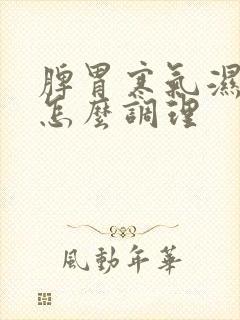 脾胃寒氣濕
怎麼調理
風動年華